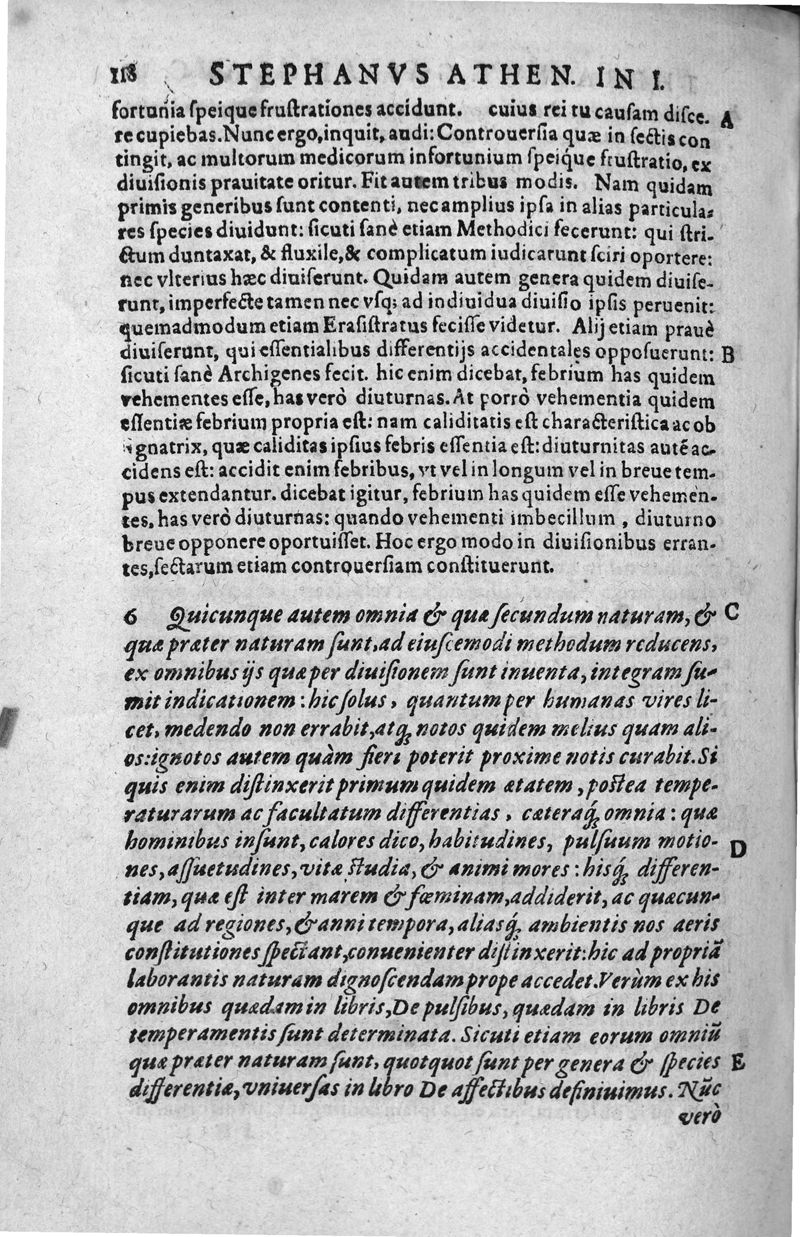 118 STEPHANVS ATHEN. IN I.
fortunia ſpeique fruſtrationes accidunt. cuius rei tu cauſam diſce- A
re cupiebas. Nunc ergo, inquit, audi: Controuerſia quæ in ſectis con
tingit, ac multorum medicorum infortunium ſpeiq́ue fruſtratio, ex
diuiſionis prauitate oritur. Fit autem tribus modis. Nam quidam
primis generibus ſunt contenti, nec amplius ipſa in alias particula-
res ſpecies diuidunt: ſicuti ſanè etiam Methodici fecerunt: qui ſtri-
ctum duntaxat, & fluxile, & complicatum iudicarunt ſciri oportere:
nec vlterius hæc diuiſerunt. Quidam autem genera quidem diuiſe-
runt, imperfecte tamen nec vſq; ad indiuidua diuiſio ipſis peruenit:
quemadmodum etiam Eraſiſtratus feciſſe videtur. Alij etiam prauè
diuiſerunt, qui eſſentialibus differentijs accidentales oppoſuerunt: B
ſicuti ſanè Archigenes fecit. hic enim dicebat, febrium has quidem
vehementes eſſe, has verò diuturnas. At porrò vehementia quidem
eſſentiæ febrium propria eſt: nam caliditatis eſt characteriſtica ac ob
ſignatrix, quæ caliditas ipſius febris eſſentia eſt: diuturnitas autē ac-
cidens eſt: accidit enim febribus, vt vel in longum vel in breue tem-
pus extendantur. dicebat igitur, febrium has quidem eſſe vehemen-
tes, has verò diuturnas: quando vehementi imbecillum, diuturno
breue opponere oportuiſſet. Hoc ergo modo in diuiſionibus erran-
tes, ſectarum etiam controuerſiam conſtituerunt.
6 Quicunque autem omnia & quæ ſecundum naturam, & C
quæ præter naturam ſunt, ad eiuſcemodi methodum reducens,
ex omnibus ijs quæ per diuiſionem ſunt inuenta, integram ſu-
mit indicationem: hic ſolus, quantum per humanas vires li-
cet, medendo non errabit, atq; notos quidem melius quam ali-
os: ignotos autem quàm fieri poterit proxime notis curabit. Si
quis enim diſtinxerit primum quidem ætatem, poſtea tempe-
raturarum ac facultatum differentias, cæteraq́; omnia: quæ
hominibus inſunt, calores dico, habitudines, pulſuum motio- D
nes, aſſuetudines, vitæ ſtudia, & animi mores: hisq́; differen-
tiam, quæ eſt inter marem & fœminam, addiderit, ac quæcun-
que ad regiones, & anni tempora, aliasq́; ambientis nos aeris
conſtitutiones ſpectant, conuenienter diſtinxerit: hic ad propriā
laborantis naturam dignoſcendam prope accedet. Verùm ex his
omnibus quædam in libris, De pulſibus, quædam in libris De
temperamentis ſunt determinata. Sicuti etiam eorum omniū
quæ præter naturam ſunt, quotquot ſunt per genera & ſpecies E
differentiæ, vniuerſas in libro De affectibus definiuimus. Nūc
verò